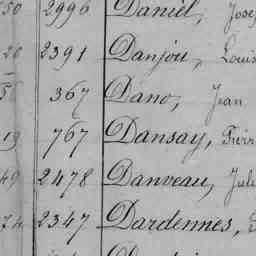 50 2996 Daniel, Jose
20 2391 Danjou, Louis
5 367 Dano, Jean
19 767 Dansay, Pierr
49 2478 Danveau, Jule
74 2347 Dardennes,